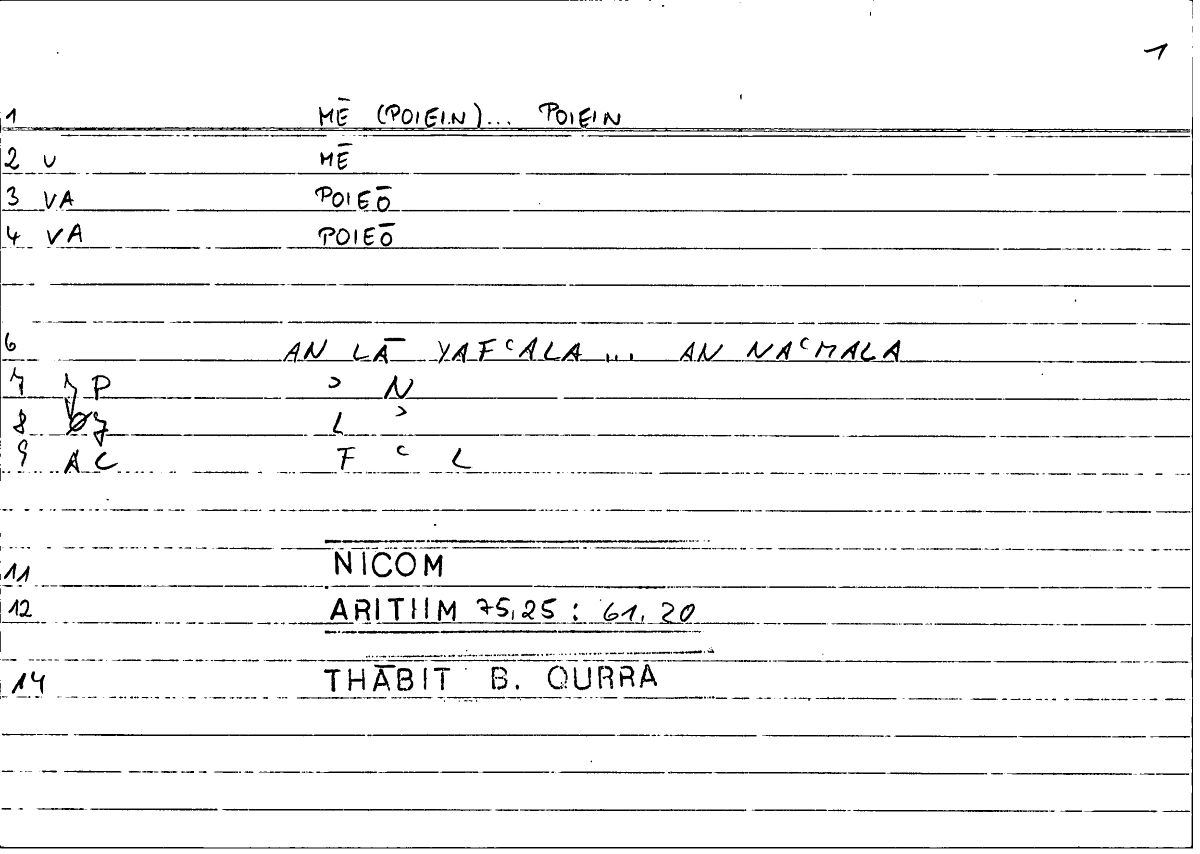 1
1 MĒ (POIEIN)... POIEIN
2 U MĒ
3 VA POIEŌ
4 VA POIEŌ
6 AN LĀ YAFʿALA ... AN NAʿMALA
7 P ʾ N
8 L ʾ
9 AC F ʿ L
11 NICOM
12 ARITHM 75,25 : 61,20
14 THĀBIT B. QURRA